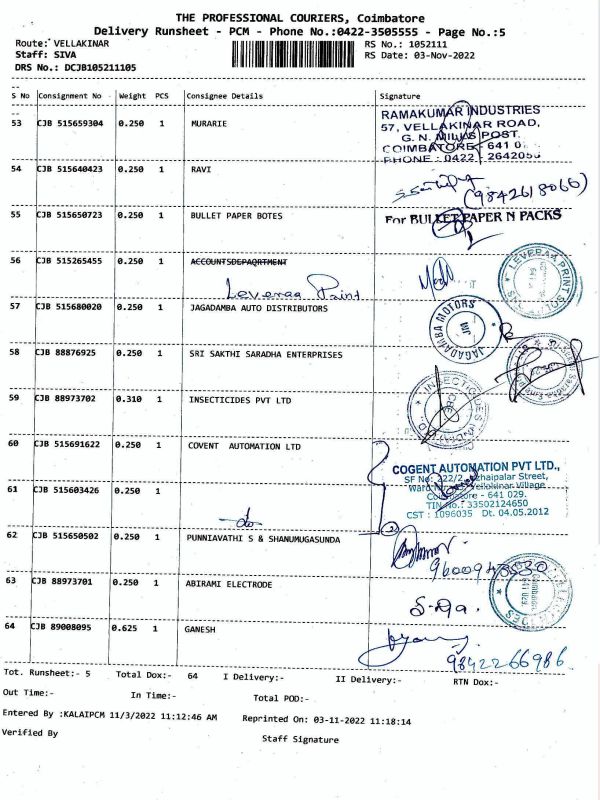 THE PROFESSIONAL COURIERS, Coimbatore
Delivery Runsheet - PCM - Phone No.:0422-3505555 - Page No.:5
Route: VELLAKINAR RS No.: 1052111
Staff: SIVA RS Date: 03-Nov-2022
DRS No.: DCJB105211105
S No Consignment No Weight PCS Consignee Details Signature
53 CJB 515659304 0.250 1 MURARIE
RAMAKUMAR INDUSTRIES
57, VELLAKINAR ROAD,
G. N. MILLS POST.
COIMBATORE - 641 0
PHONE : 0422 : 264205
54 CJB 515640423 0.250 1 RAVI
(9842618066)
55 CJB 515650723 0.250 1 BULLET PAPER BOTES
For BULLET PAPER N PACKS
56 CJB 515265455 0.250 1 ACCOUNTSDEPAQRTMENT
Leveraa Print
LEVERAA PRINT
57 CJB 515680020 0.250 1 JAGADAMBA AUTO DISTRIBUTORS
JAGADAMBA MOTORS
58 CJB 88876925 0.250 1 SRI SAKTHI SARADHA ENTERPRISES
59 CJB 88973702 0.310 1 INSECTICIDES PVT LTD
INSECTICIDES
60 CJB 515691622 0.250 1 COVENT AUTOMATION LTD
COGENT AUTOMATION PVT LTD.,
SF No: 222/2, zhaipalar Street,
Ward Vellokinar Village
Coimbatore - 641 029.
TIN No.: 33502124650
CST : 1096035 Dt. 04.05.2012
61 CJB 515603426 0.250 1
do
62 CJB 515650502 0.250 1 PUNNIAVATHI S & SHANUMUGASUNDA
63 CJB 88973701 0.250 1 ABIRAMI ELECTRODE
Coimbatore 641 029
64 CJB 89008095 0.625 1 GANESH
9842266986
Tot. Runsheet:- 5 Total Dox:- 64 I Delivery:- II Delivery:- RTN Dox:-
Out Time:- In Time:- Total POD:-
Entered By :KALAIPCM 11/3/2022 11:12:46 AM Reprinted On: 03-11-2022 11:18:14
Verified By Staff Signature